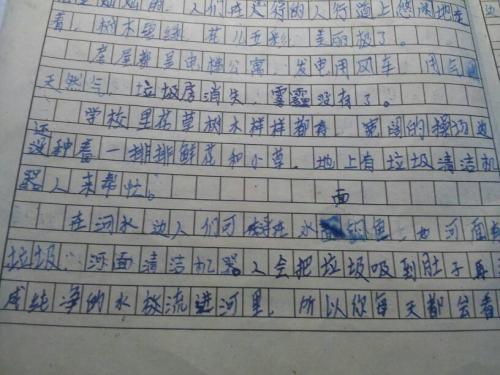 人们在宽得的人行道上悠闲地走
着,树木翠绿,花儿五彩,美丽极了。
房屋都是电梯公寓,发电用风车,用气
天然气,垃圾房消失,雾霾没有了。
学校里花草树木样样都有,宽阔的操场边
还
没种着一排排鲜花和小草,地上有垃圾清洁机
器人来帮忙。
面
在河水边人们可在水钓鱼,如河面有
垃圾,河面清洁机器人会把垃圾吸到肚子再
成纯净的水放流进河里,所以你每天都会看